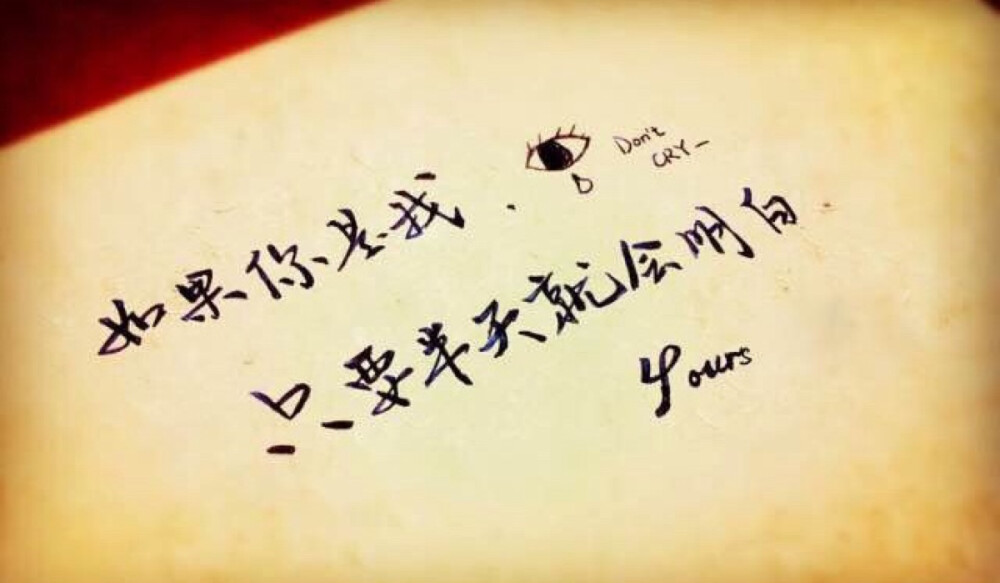 Don't
CRY-
如果你是我.
只要半天就会明白
Yours